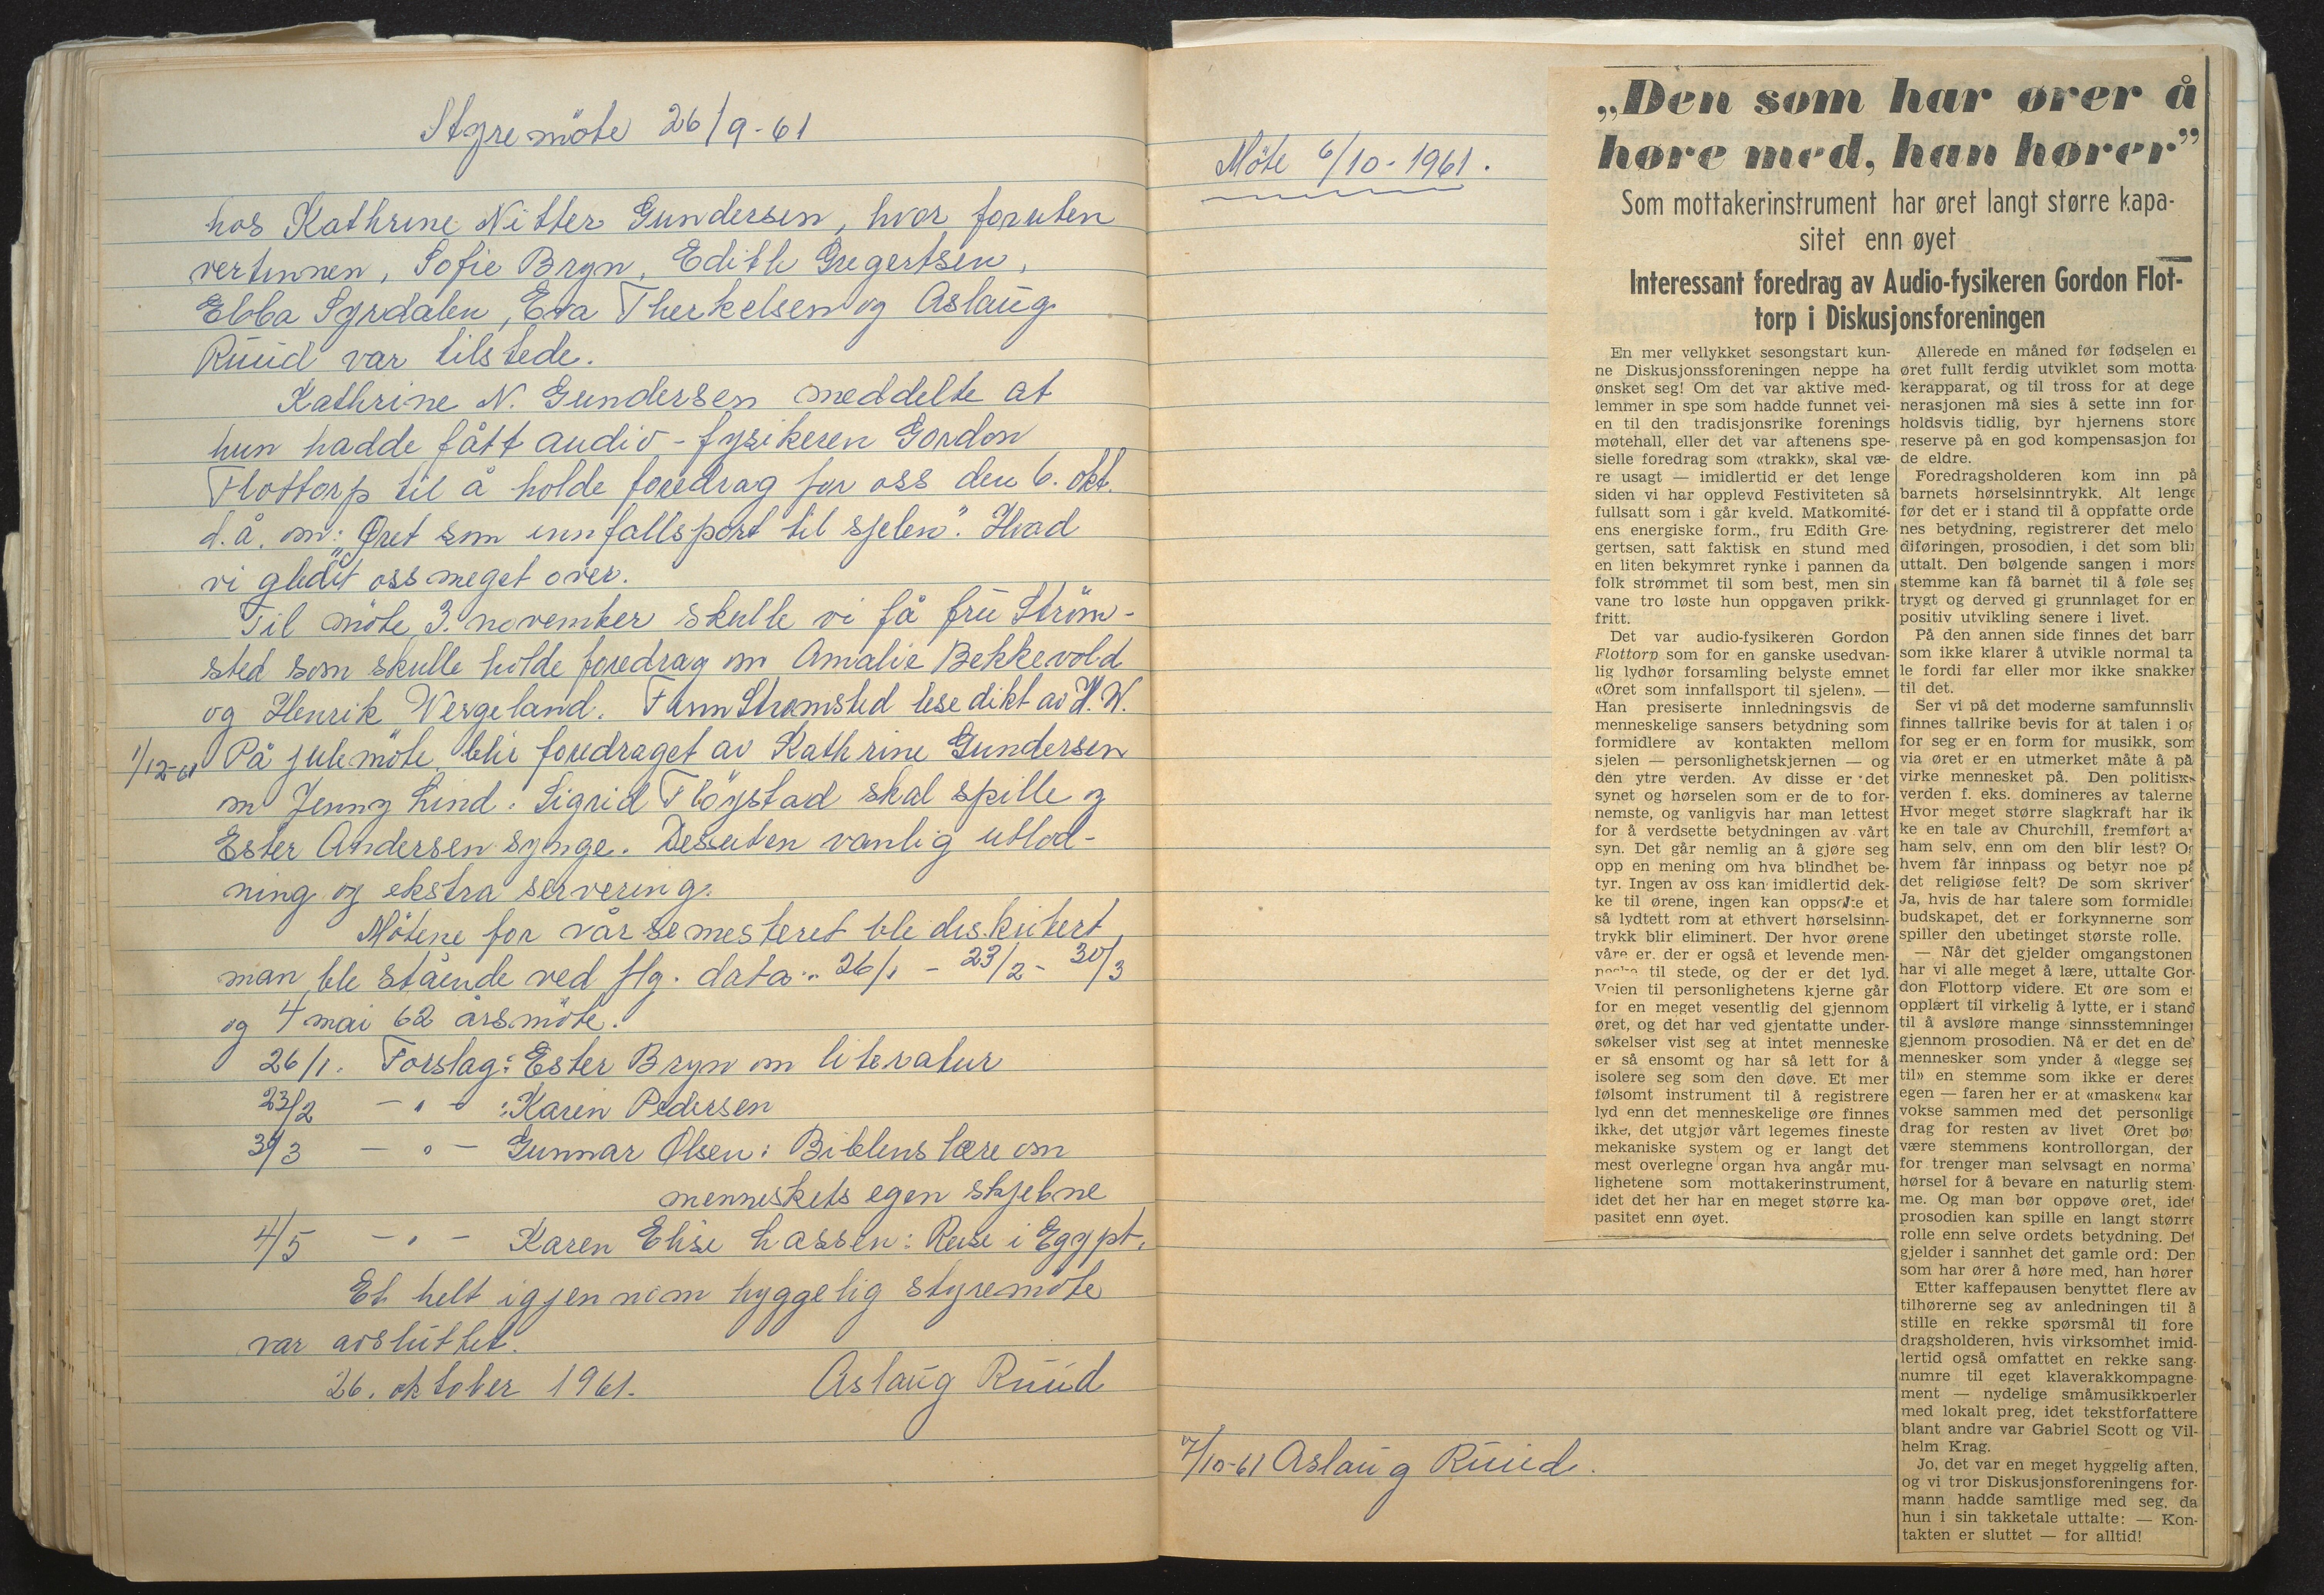 Styremöte 26/9-61
hos Kathrine Nitter Gundersen, hvor foruten
vertinnen, Sofie Bryn, Edith Gregertsen,
Ebba Syrdalen, Eva Therkelsen og Aslaug
Ruud var tilstede.
Kathrine N. Gundersen meddelte at
hun hadde fått audio-fysikeren Gordon
Flottorp til å holde foredrag for oss den 6. okt.
d.å. om: "Øret som innfallsport til sjelen". Hvad
vi gledet oss meget over.
Til møte 3. november skulle vi få fru Ström-
sted som skulle holde foredrag om Amalie Bekkevold
og Henrik Wergeland. Finn Strømsted lese dikt av H.W.
1/12-61 På julemöte blir foredraget av Kathrine Gundersen
om Jenny Lind. Sigrid Flöystad skal spille og
Ester Andersen synge. Desuten vanlig utlod-
ning og ekstra servering.
Mötene for vårsemesteret ble diskutert
man ble stående ved flg. data: 26/1 - 23/2 - 30/3
og 4 mai 62 årsmöte.
26/1. Forslag: Ester Bryn om literatur
23/2 - " - : Karen Pedersen
30/3 - " - Gunnar Olsen: Bibelens lære om
menneskets egen skjebne
4/5 - " - Karen Elise Lassen: Reise i Egypt.
Et helt igjennom hyggelig styremöte
var avsluttet.
26. oktober 1961. Aslaug Ruud
Möte 6/10-1961.
7/10-61 Aslaug Ruud.
„Den som har ører å
høre med, han hører”
Som mottakerinstrument har øret langt større kapa-
sitet enn øyet
Interessant foredrag av Audio-fysikeren Gordon Flot-
torp i Diskusjonsforeningen
En mer vellykket sesongstart kun-
ne Diskusjonssforeningen neppe ha
ønsket seg! Om det var aktive med-
lemmer in spe som hadde funnet vei-
en til den tradisjonsrike forenings
møtehall, eller det var aftenens spe-
sielle foredrag som «trakk», skal væ-
re usagt — imidlertid er det lenge
siden vi har opplevd Festiviteten så
fullsatt som i går kveld. Matkomité-
ens energiske form., fru Edith Gre-
gertsen, satt faktisk en stund med
en liten bekymret rynke i pannen da
folk strømmet til som best, men sin
vane tro løste hun oppgaven prikk-
fritt.
Det var audio-fysikeren Gordon
Flottorp som for en ganske usedvan-
lig lydhør forsamling belyste emnet
«Øret som innfallsport til sjelen». —
Han presiserte innledningsvis de
menneskelige sansers betydning som
formidlere av kontakten mellom
sjelen — personlighetskjernen — og
den ytre verden. Av disse er det
synet og hørselen som er de to for-
nemste, og vanligvis har man lettest
for å verdsette betydningen av vårt
syn. Det går nemlig an å gjøre seg
opp en mening om hva blindhet be-
tyr. Ingen av oss kan imidlertid dek-
ke til ørene, ingen kan oppsøke et
så lydtett rom at ethvert hørselsinn-
trykk blir eliminert. Der hvor ørene
våre er, der er også et levende men-
neske til stede, og der er det lyd.
Veien til personlighetens kjerne går
for en meget vesentlig del gjennom
øret, og det har ved gjentatte under-
søkelser vist seg at intet menneske
er så ensomt og har så lett for å
isolere seg som den døve. Et mer
følsomt instrument til å registrere
lyd enn det menneskelige øre finnes
ikke, det utgjør vårt legemes fineste
mekaniske system og er langt det
mest overlegne organ hva angår mu-
lighetene som mottakerinstrument,
idet det her har en meget større ka-
pasitet enn øyet.
Allerede en måned før fødselen er
øret fullt ferdig utviklet som motta-
kerapparat, og til tross for at dege
nerasjonen må sies å sette inn for
holdsvis tidlig, byr hjernens store
reserve på en god kompensasjon for
de eldre.
Foredragsholderen kom inn på
barnets hørselsinntrykk. Alt lenge
før det er i stand til å oppfatte orde
nes betydning, registrerer det melo
diføringen, prosodien, i det som blir
uttalt. Den bølgende sangen i mors
stemme kan få barnet til å føle seg
trygt og derved gi grunnlaget for en
positiv utvikling senere i livet.
På den annen side finnes det barn
som ikke klarer å utvikle normal ta
le fordi far eller mor ikke snakker
til det.
Ser vi på det moderne samfunnsliv
finnes tallrike bevis for at talen i og
for seg er en form for musikk, som
via øret er en utmerket måte å på
virke mennesket på. Den politiske
verden f. eks. domineres av talerne
Hvor meget større slagkraft har ik
ke en tale av Churchill, fremført av
ham selv, enn om den blir lest? Og
hvem får innpass og betyr noe på
det religiøse felt? De som skriver?
Ja, hvis de har talere som formidler
budskapet, det er forkynnerne som
spiller den ubetinget største rolle.
— Når det gjelder omgangstonen
har vi alle meget å lære, uttalte Gor-
don Flottorp videre. Et øre som er
opplært til virkelig å lytte, er i stand
til å avsløre mange sinnsstemninger
gjennom prosodien. Nå er det en del
mennesker som ynder å «legge seg
til» en stemme som ikke er deres
egen — faren her er at «masken« kan
vokse sammen med det personlige
drag for resten av livet Øret bør
være stemmens kontrollorgan, der
for trenger man selvsagt en normal
hørsel for å bevare en naturlig stem-
me. Og man bør oppøve øret, idet
prosodien kan spille en langt større
rolle enn selve ordets betydning. Det
gjelder i sannhet det gamle ord: Den
som har ører å høre med, han hører
Etter kaffepausen benyttet flere av
tilhørerne seg av anledningen til å
stille en rekke spørsmål til fore
dragsholderen, hvis virksomhet imid-
lertid også omfattet en rekke sang-
numre til eget klaverakkompagne-
ment — nydelige småmusikkperler
med lokalt preg, idet tekstforfattere
blant andre var Gabriel Scott og Vil-
helm Krag.
Jo, det var en meget hyggelig aften,
og vi tror Diskusjonsforeningens for-
mann hadde samtlige med seg, da
hun i sin takketale uttalte: — Kon-
takten er sluttet — for alltid!